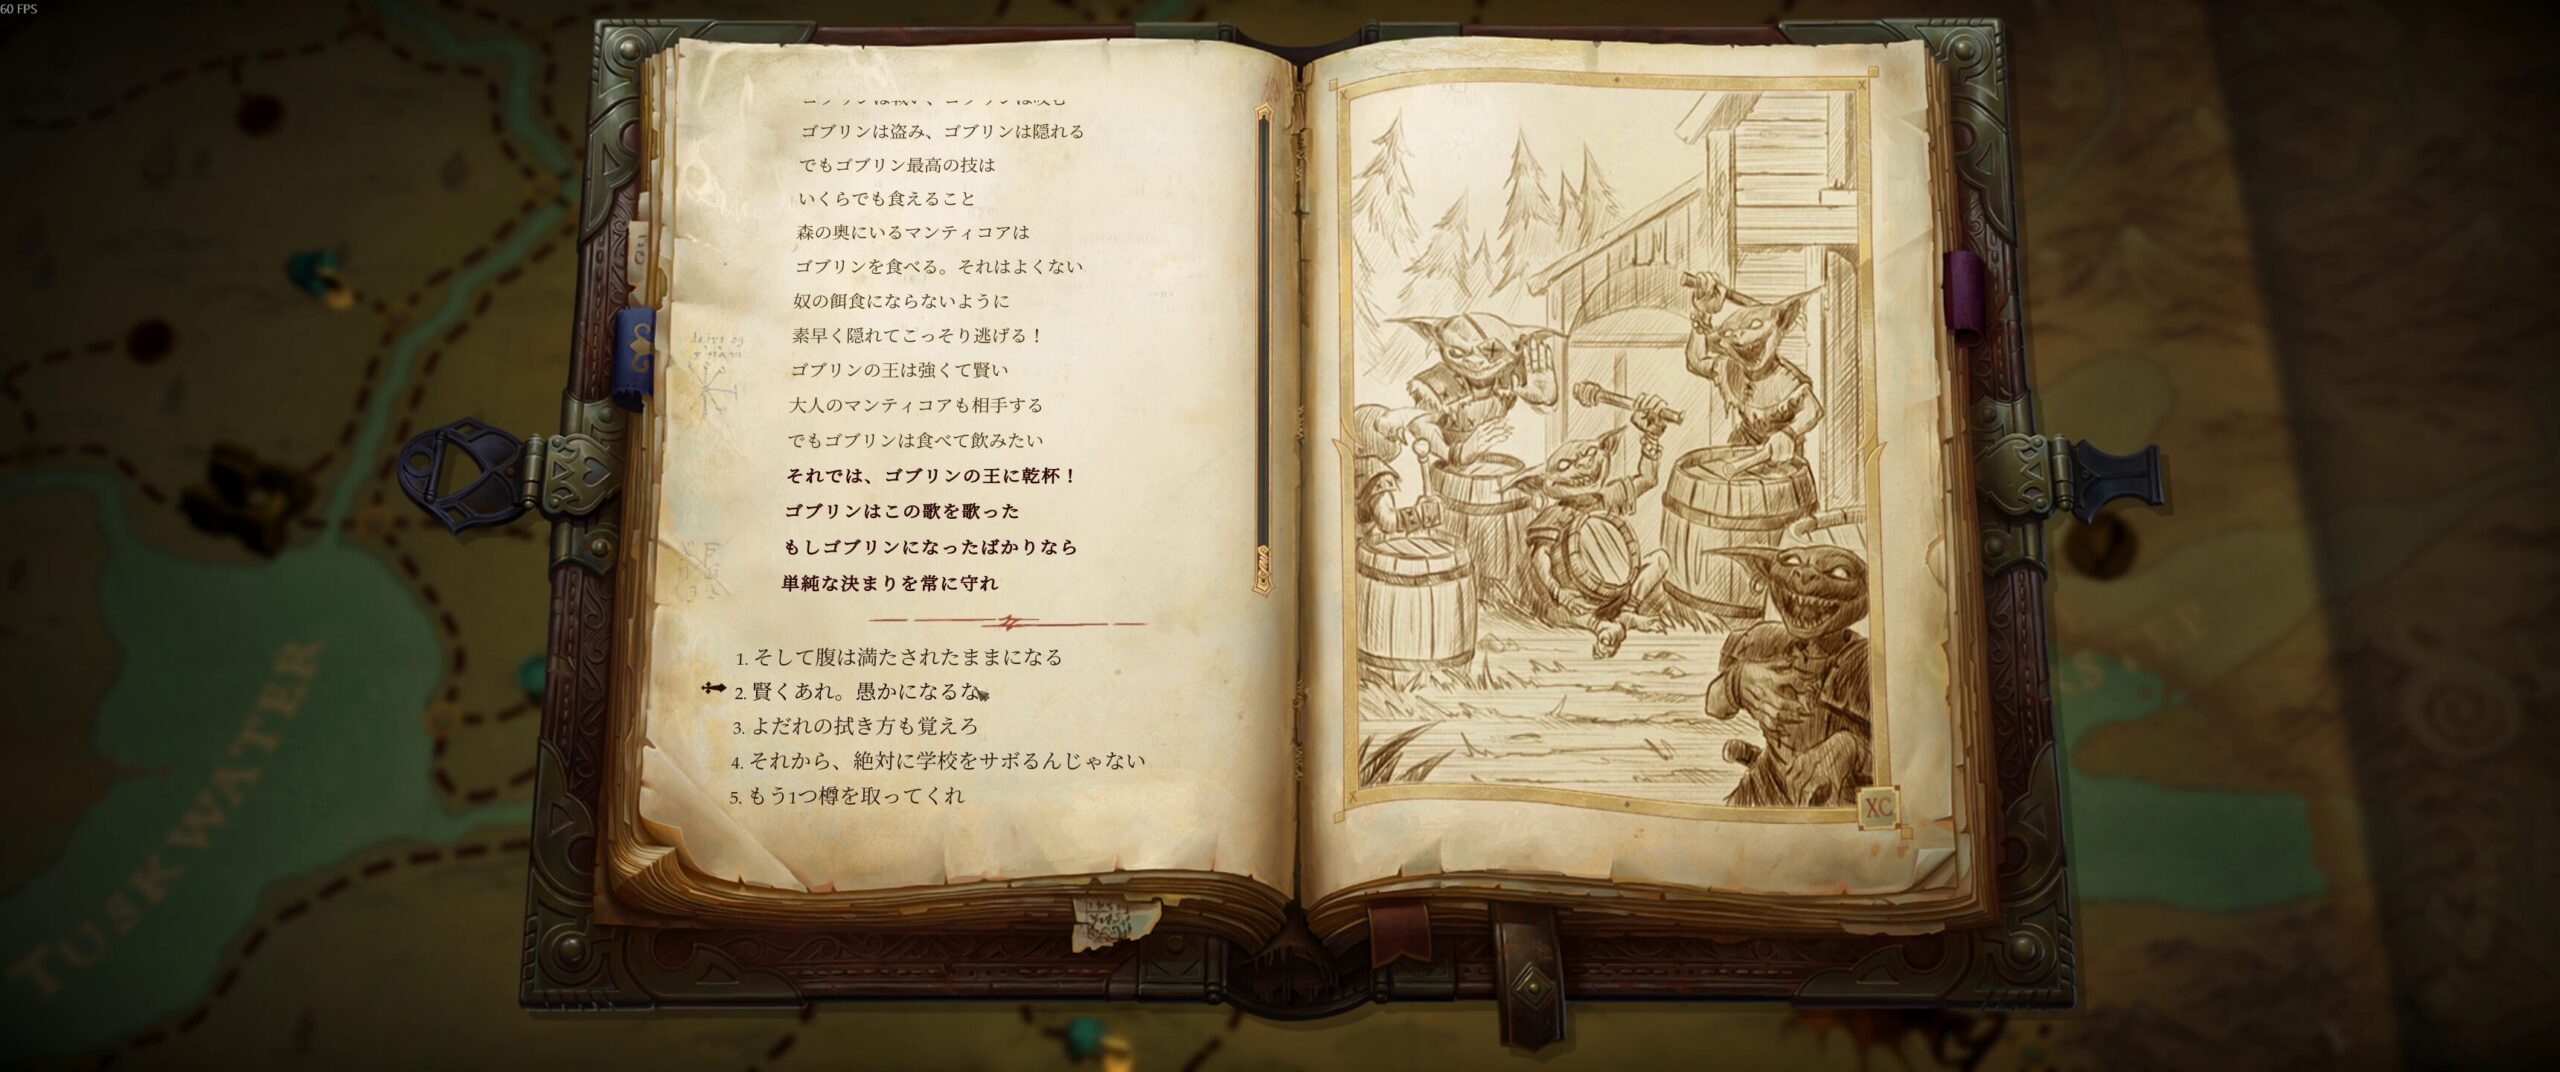 60 FPS
ゴブリンは盗み、ゴブリンは隠れる
でもゴブリン最高の技は
いくらでも食えること
森の奥にいるマンティコアは
ゴブリンを食べる。それはよくない
奴の餌食にならないように
素早く隠れてこっそり逃げる！
ゴブリンの王は強くて賢い
大人のマンティコアも相手する
でもゴブリンは食べて飲みたい
それでは、ゴブリンの王に乾杯！
ゴブリンはこの歌を歌った
もしゴブリンになったばかりなら
単純な決まりを常に守れ
1. そして腹は満たされたままになる
2. 賢くあれ。愚かになるな
3. よだれの拭き方も覚えろ
4. それから、絶対に学校をサボるんじゃない
5. もう1つ樽を取ってくれ
XC
TUSKWATER